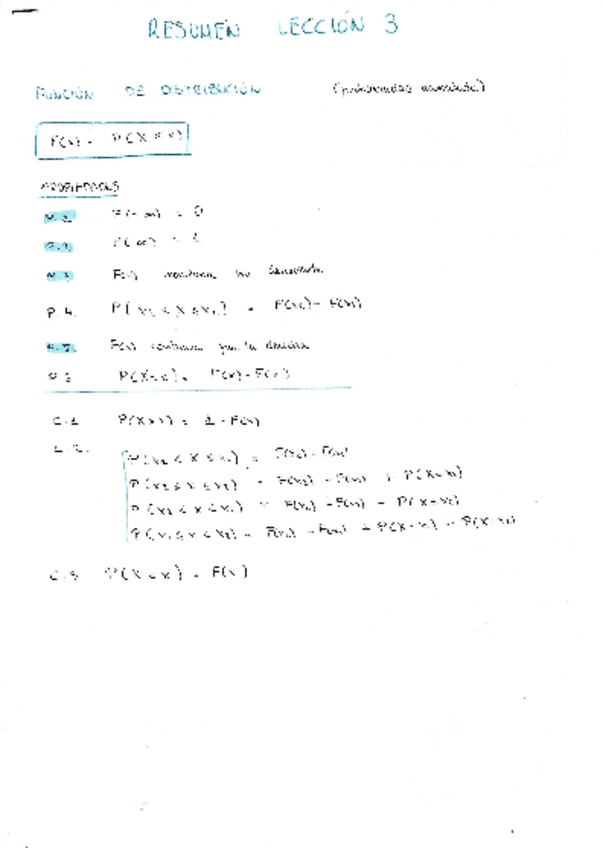 RESUMEN LECCIÓN 3
FUNCIÓN DE DISTRIBUCIÓN (probabilidad acumulada)
F(x) = P(X ≤ x)
PROPIEDADES
F(-∞) = 0
F(∞) = 1
F(x) monótona no decreciente
P.4. P(x₁ < X ≤ x₂) = F(x₂) - F(x₁)
F(x) continua por la derecha
P(X=x) = F(x) - F(x⁻)
C.1 P(X>x) = 1 - F(x)
C.2. P(x₁ < X ≤ x₂) = F(x₂) - F(x₁)
P(x₁ ≤ X ≤ x₂) = F(x₂) - F(x₁) + P(X=x₁)
P(x₁ < X < x₂) = F(x₂) - F(x₁) - P(X=x₂)
P(x₁ ≤ X < x₂) = F(x₂) - F(x₁) + P(X=x₁) - P(X=x₂)
C.3 P(X<x) = F(x⁻)